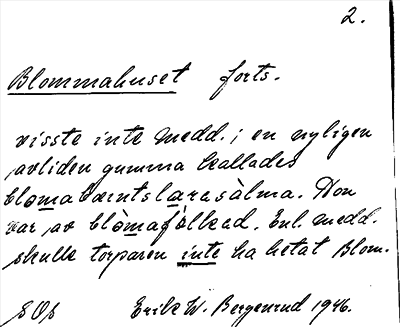 2.
Blommahuset forts.
visste inte medd.; en nyligen
avliden gumma kallades
blomabæntslarasàlma. Hon
var av blòmafólked. Enl. medd.
skulle torparen inte ha hetat Blom.
SOs Erik W. Bergenrud 1946.